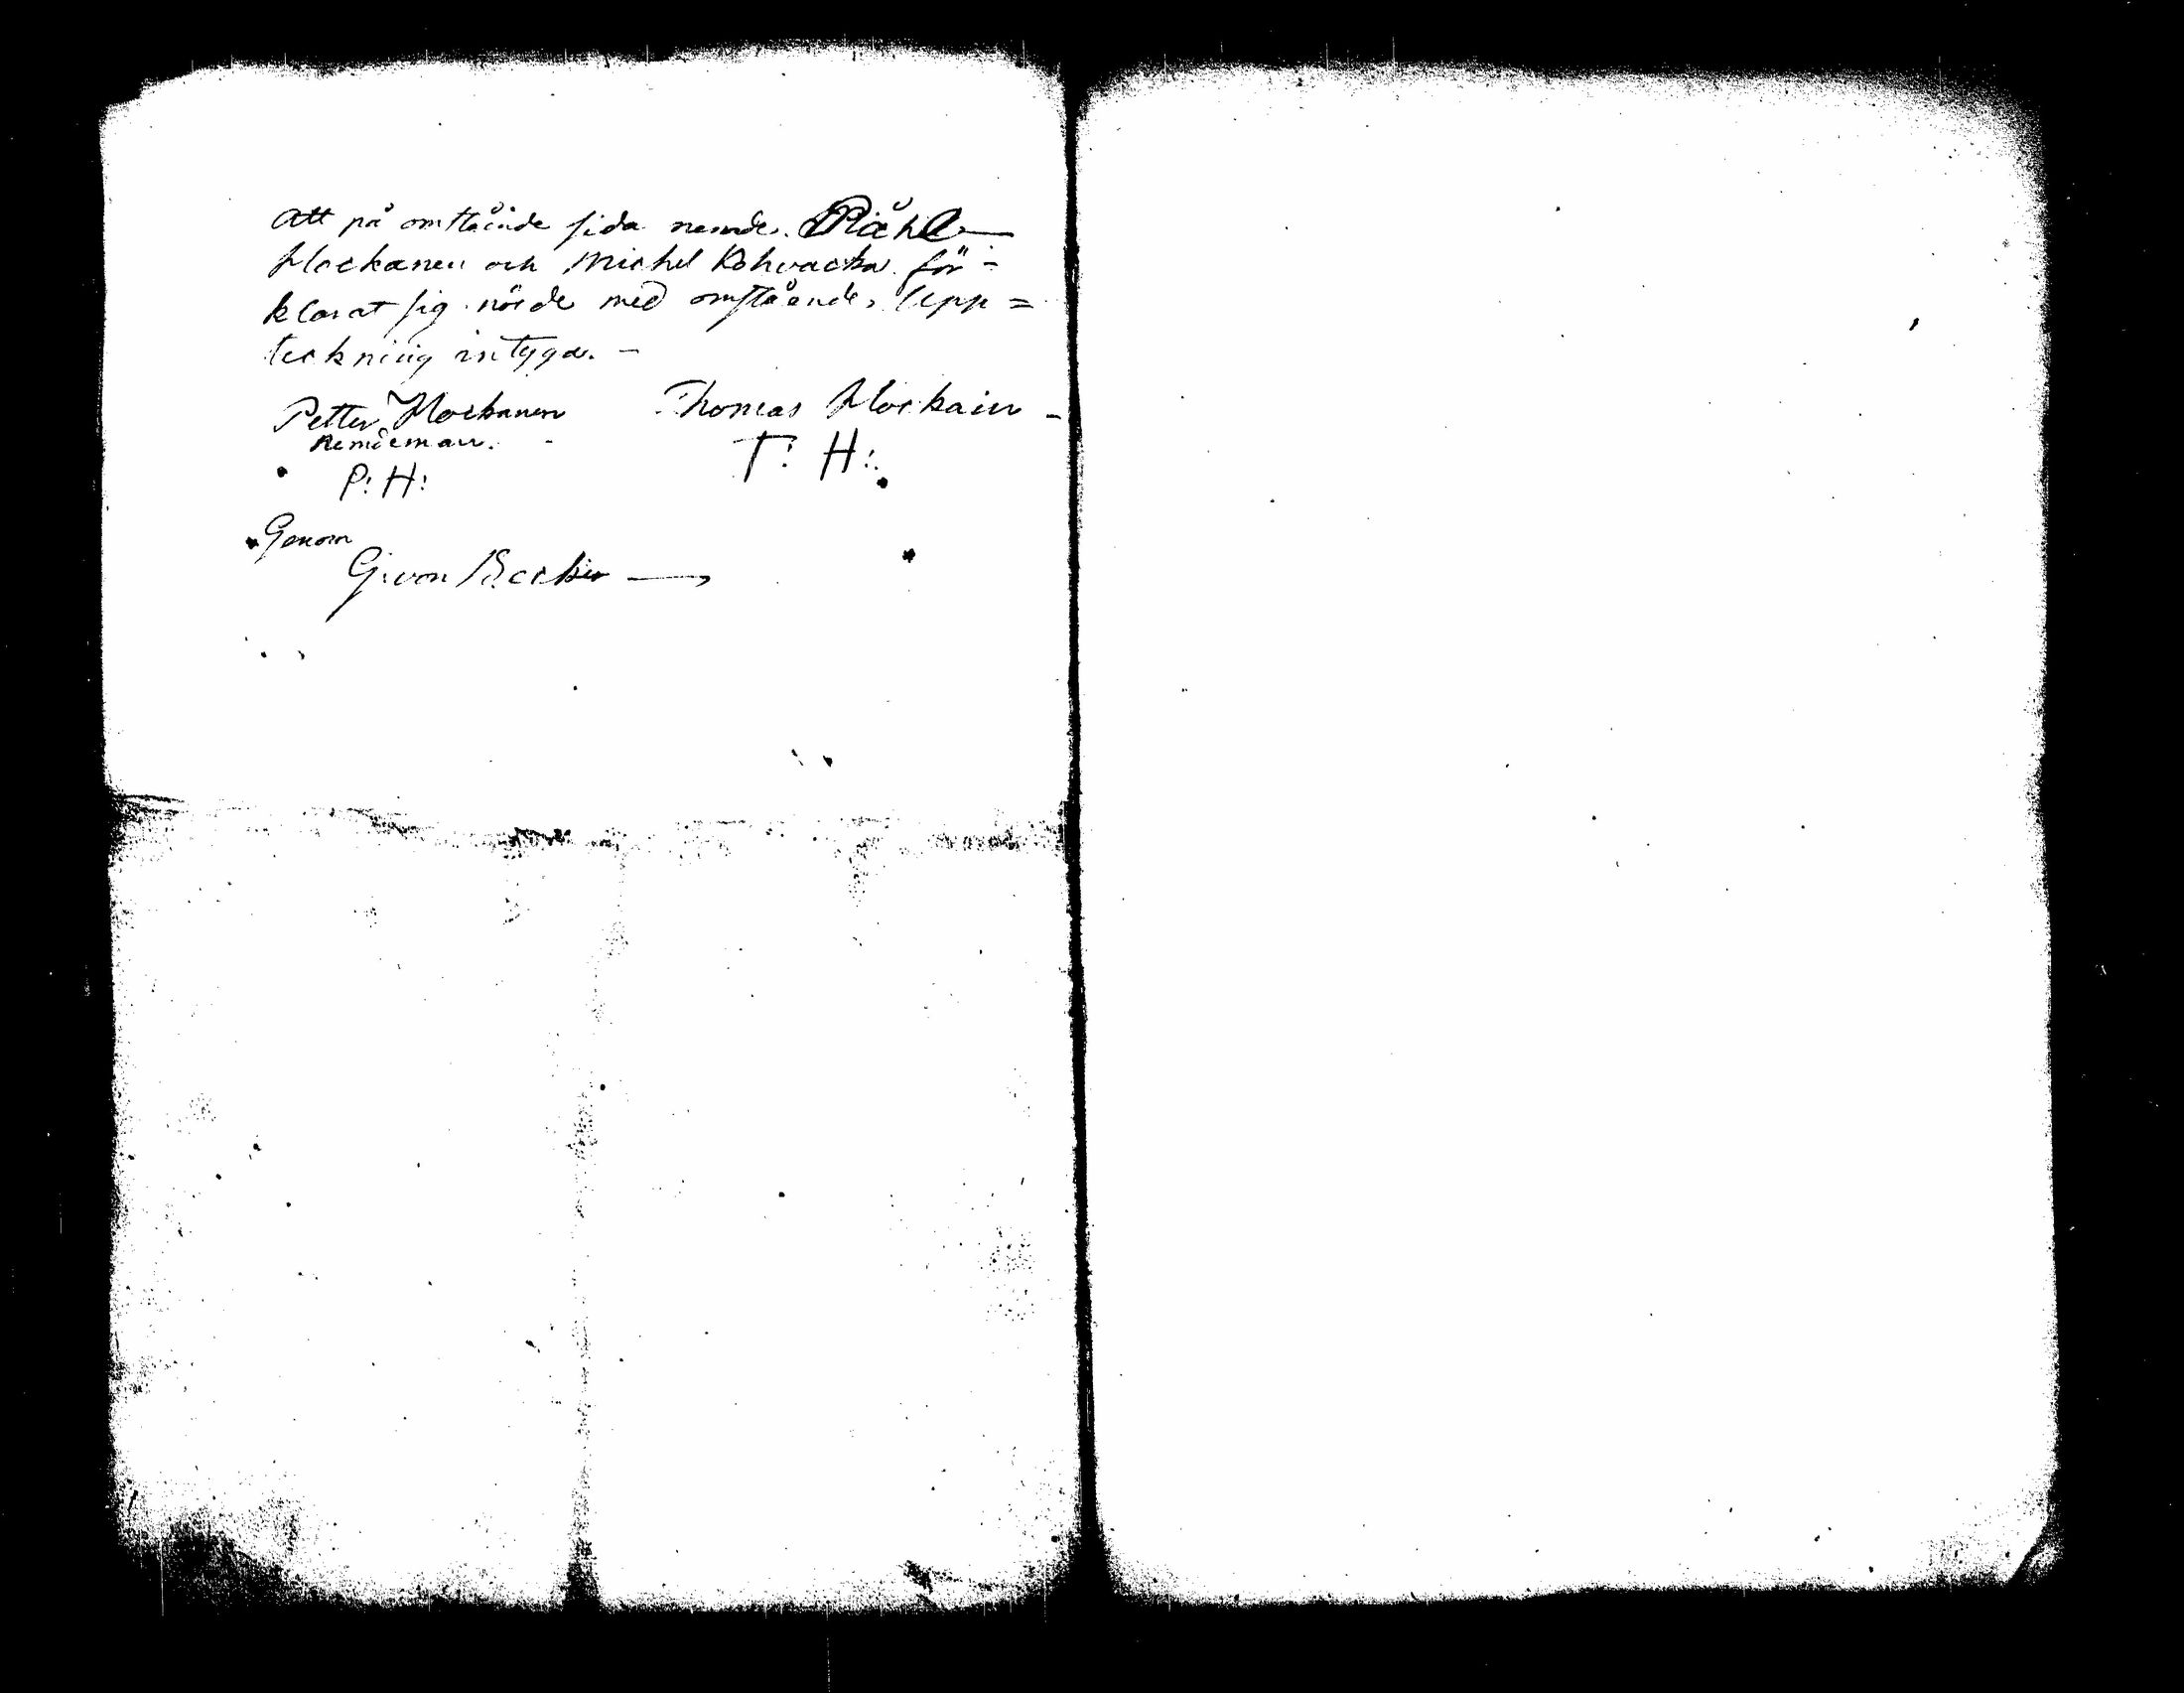 Att på omstående sida nemde Påhl
Hockanen och Michel Kohvacka för-
klarat sig nöde med omstående, Upp=
teckning intyga. -
Petter Hockanen Thomas Hockain -
Nemdeman. -
P: H: T: H:
Genom
G: von Becker